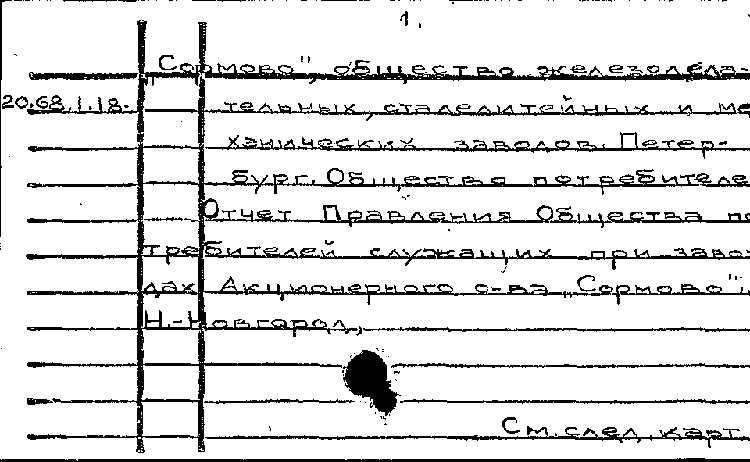 1.
„Сормово", общество железодела-
20.68.1.18. тельных, сталелитейных и ме
ханических заводов. Петер-
бург. Общество потребителе
Отчет Правления Общества по
требителей служащих при заво
дах Акционерного о-ва „Сормово".
Н.-Новгород,
См. след. карт